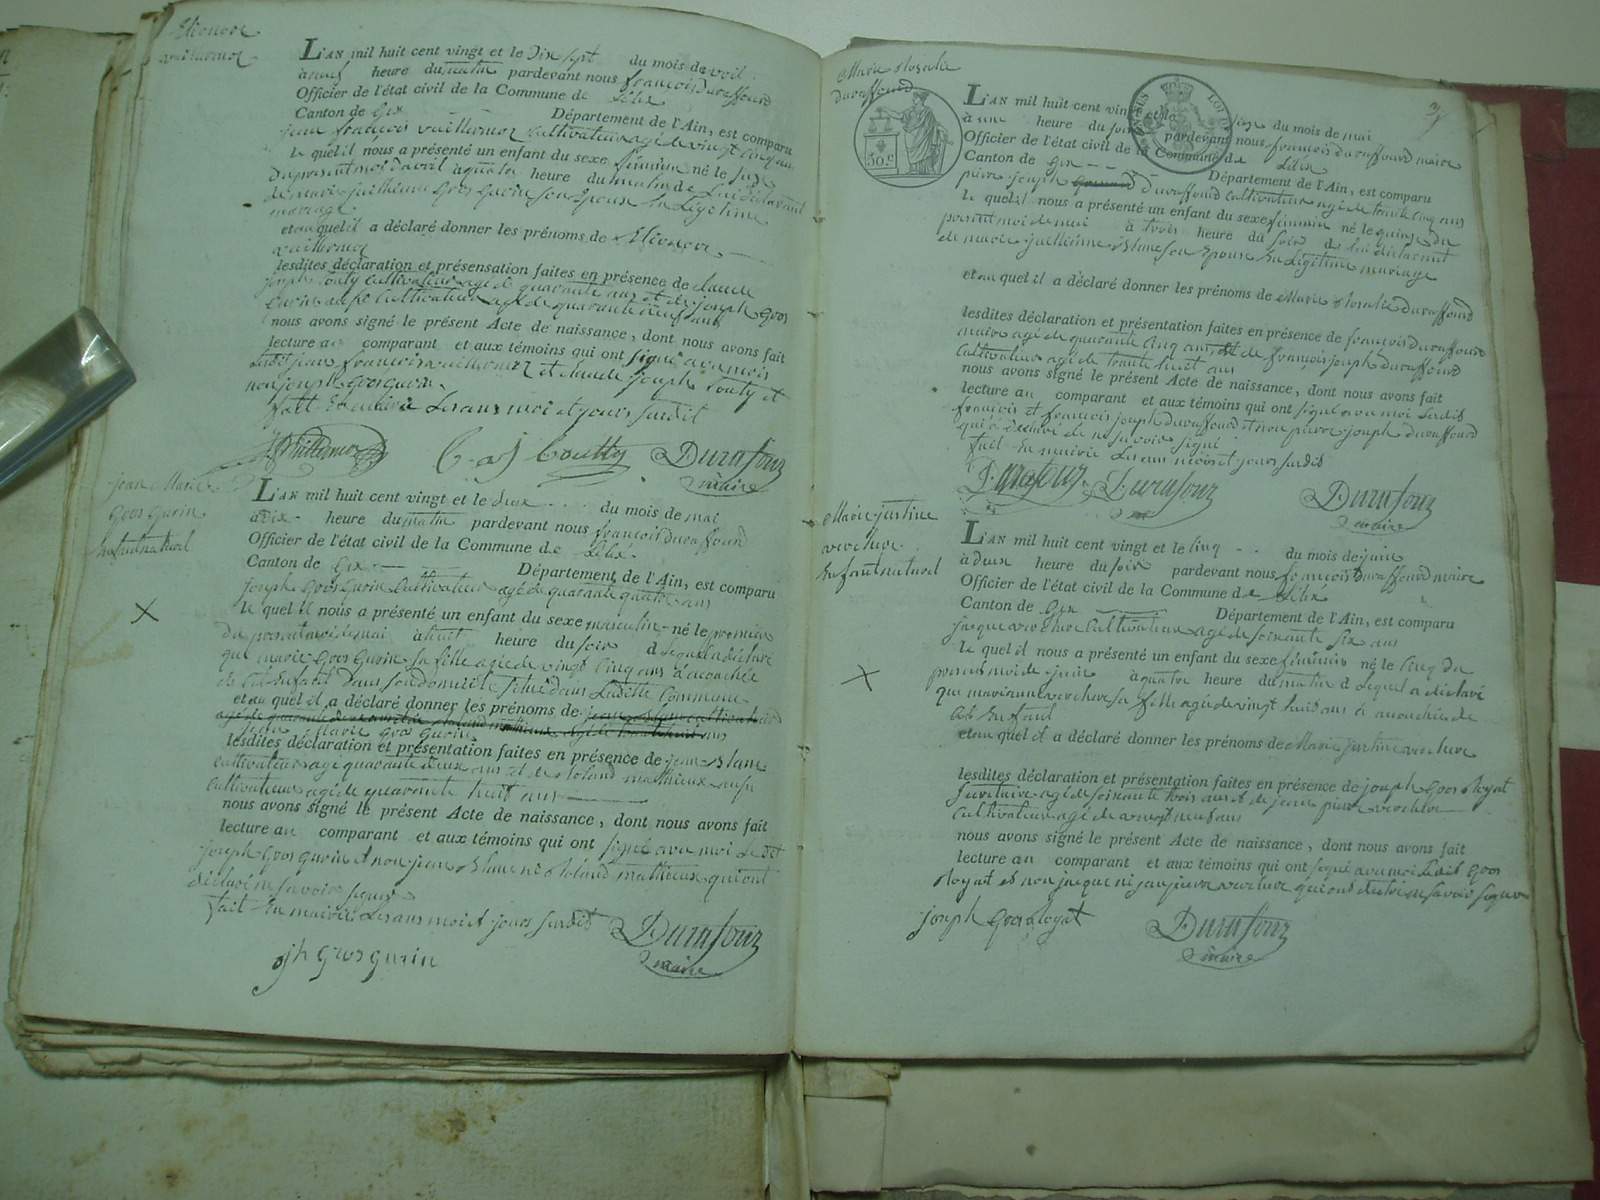 Elionore
vuillermoz
LAN mil huit cent vingt et le Dix sept du mois d'avril
à neuf heure du matin pardevant nous françois Duraffourd
Officier de l'état civil de la Commune de Lélex
Canton de Gex Département de l'Ain, est comparu
jean françois vuillermoz Cultivateur agé de vingt cinq ans
le quel il nous a présenté un enfant du sexe féminin né le
du présent mois d'avril à quatre heure du matin de Lui déclarant
de marie guilhelmine Gros Gurin Son Epouse En Légitime
mariage
et au quel il a déclaré donner les prénoms de Elionore
vuillermoz
lesdites déclaration et présensation faites en présence de claude
joseph Coutty Cultivateur agé de quarante ans et de joseph Gros
Gurin aussi Cultivateur agé de quarante neuf ans
nous avons signé le présent Acte de naissance, dont nous avons fait
lecture au comparant et aux témoins qui ont signé avec mois
Ledit jean françois vuillermoz et claude joseph Coutty et
non joseph Gros Gurin.
fait En mairie Les ans moi et jours susdit
C. J Coutty Durafour
maire
jean Marie
Gros Gurin
Enfant naturel
LAN mil huit cent vingt et le deux du mois de mai
à dix heure du matin pardevant nous françois Duraffourd
Officier de l'état civil de la Commune de Lélex
Canton de Gex Département de l'Ain, est comparu
joseph Gros Gurin Cultivateur agé de quarante quatre ans
le quel il nous a présenté un enfant du sexe masculin né le premier
du présent moi de mai à huit heure du soir d Lequel a déclaré
que marie Gros Gurin sa fille agée de vingt cinq ans à acouchée
de Cet Enfant dans son domicile situé dans Ladite Commune
et au quel il a déclaré donner les prénoms de
jean Marie Gros Gurin
lesdites déclaration et présentation faites en présence de jean Blanc
cultivateur agé quarante deux ans et de Roland mathieux aussi
Cultivateur agé de quarante huit ans
nous avons signé le présent Acte de naissance, dont nous avons fait
lecture au comparant et aux témoins qui ont signé avec moi Ledit
joseph Gros Gurin et non jean Blanc ni Roland mathieux qui ont
déclaré ne savoir signer
fait En mairie Les ans mois et jours susdit
jh Gros Gurin Durafour
maire
Marie Rosalie
duraffourd
50.c
LAN mil huit cent vingt et le seize du mois de mai
à une heure du soir pardevant nous françois duraffourd maire
Officier de l'état civil de la Commune de Lélex
Canton de Gex Département de l'Ain, est comparu
pierre joseph duraffourd Cultivateur agé de trente cinq ans
le quel il nous a présenté un enfant du sexe féminin né le quinze du
présent moi de mai à trois heure du soir de lui déclarant
de marie guilhelmine Blanc son Epouse En Légitime mariage
et au quel il a déclaré donner les prénoms de Marie Rosalie duraffourd
lesdites déclaration et présentation faites en présence de francois duraffourd
maire agé de quarante cinq ans et de françois joseph duraffourd
Cultivateur agé de trente huit ans
nous avons signé le présent Acte de naissance, dont nous avons fait
lecture au comparant et aux témoins qui ont signé avec moi Lesdits
françois et françois joseph duraffourd et non pierre joseph duraffourd
qui a déclaré de ne savoir signé
fait En mairie Les ans mois et jours susdits
Durafour Durafour Durafour
maire
Marie justine
verchere
Enfant naturel
LAN mil huit cent vingt et le cinq du mois de juin
à deux heure du soir pardevant nous françois Duraffourd maire
Officier de l'état civil de la Commune de Lélex
Canton de Gex Département de l'Ain, est comparu
jacque verchere Cultivateur agé de soixante six ans
le quel il nous a présenté un enfant du sexe féminin né le Cinq du
présent moi de juin à quatre heure du matin d Lequel a déclaré
que mariane verchere sa fille agée de vingt huit ans à acouchée de
Cet Enfant
et au quel il a déclaré donner les prénoms de Marie justine verchere
lesdites déclaration et présentation faites en présence de joseph Gros Royat
Secretaire agé de soixante trois ans et de jean pierre verchere
Cultivateur agé de ans
nous avons signé le présent Acte de naissance, dont nous avons fait
lecture au comparant et aux témoins qui ont signé avec moi Ledit Gros
Royat et non jacque ni jean pierre verchere qui ont déclaré ne savoir signer
joseph Gros Royat Durafour
maire